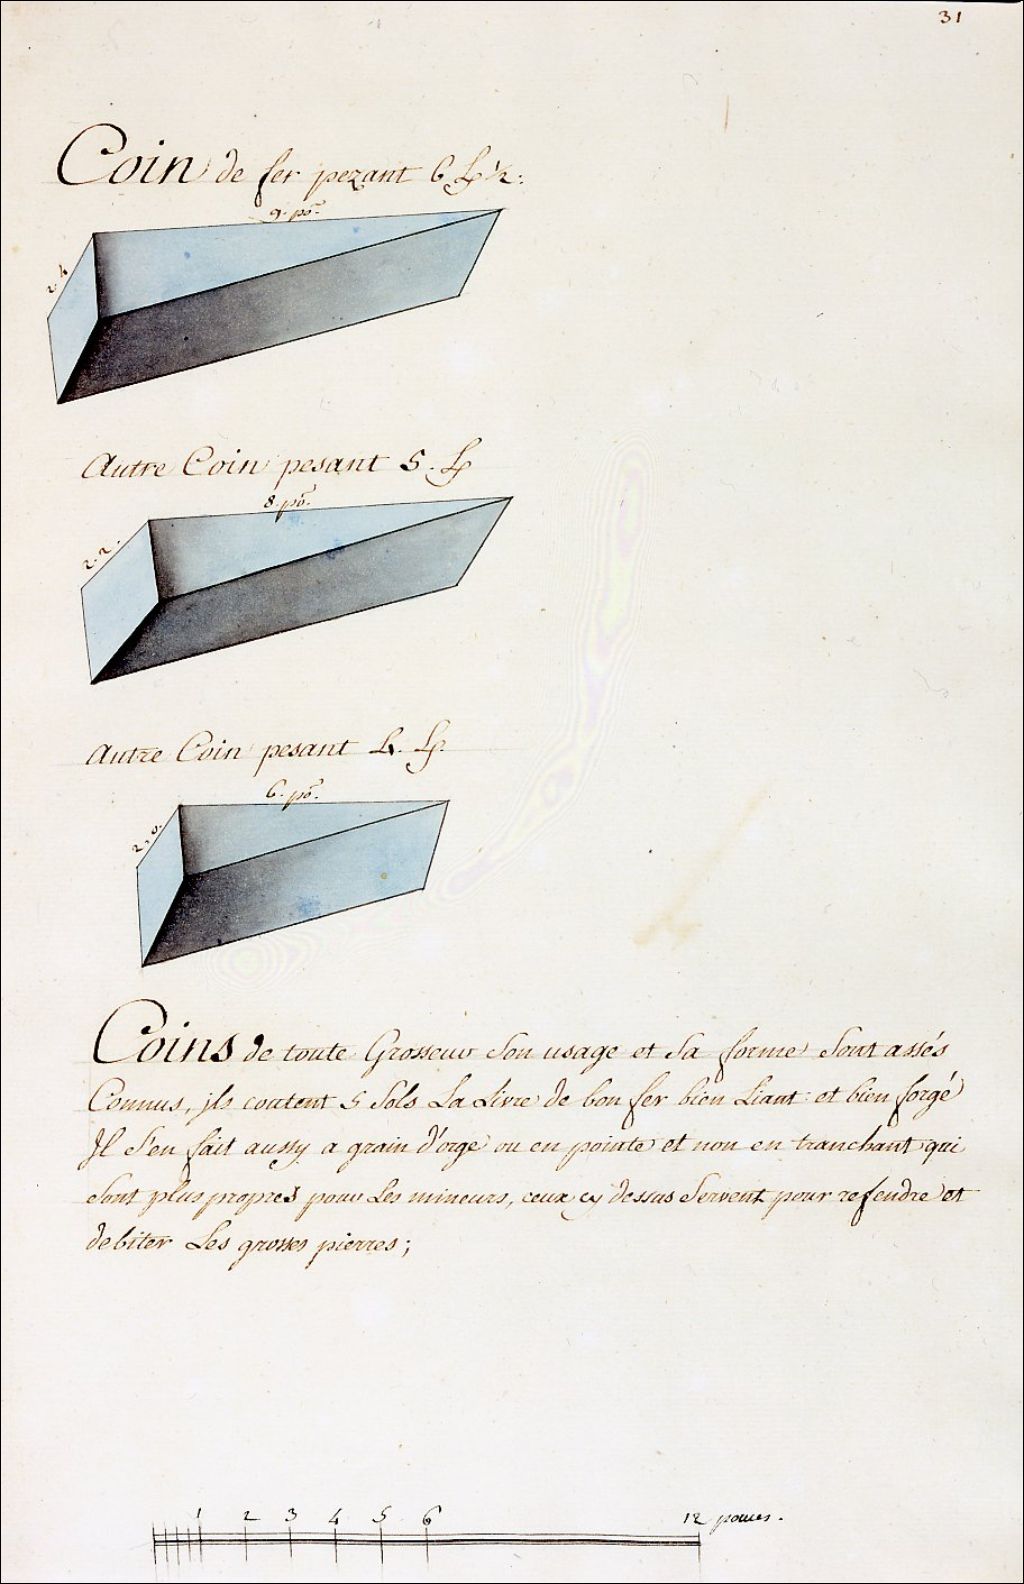 31
Coin de fer pezant 6 ℔ ½:
9. po.
2. 4
Autre Coin pesant 5. ℔
8. po.
2. 2.
Autre Coin pesant 4. ℔.
6. po.
2, 0.
Coins de toute Grosseur Son usage et Sa forme Sont assés
Connus, ils coutent 5 Sols La Livre de bon fer bien Liant: et bien forgé
Il S'en fait aussy a grain d'orge ou en pointe et non en tranchant qui
Sont plus propres pour Les mineurs, ceux cy dessus Servent pour refendre et
debiter Les grosses pierres;
1 2 3 4 5 6 12 pouces.